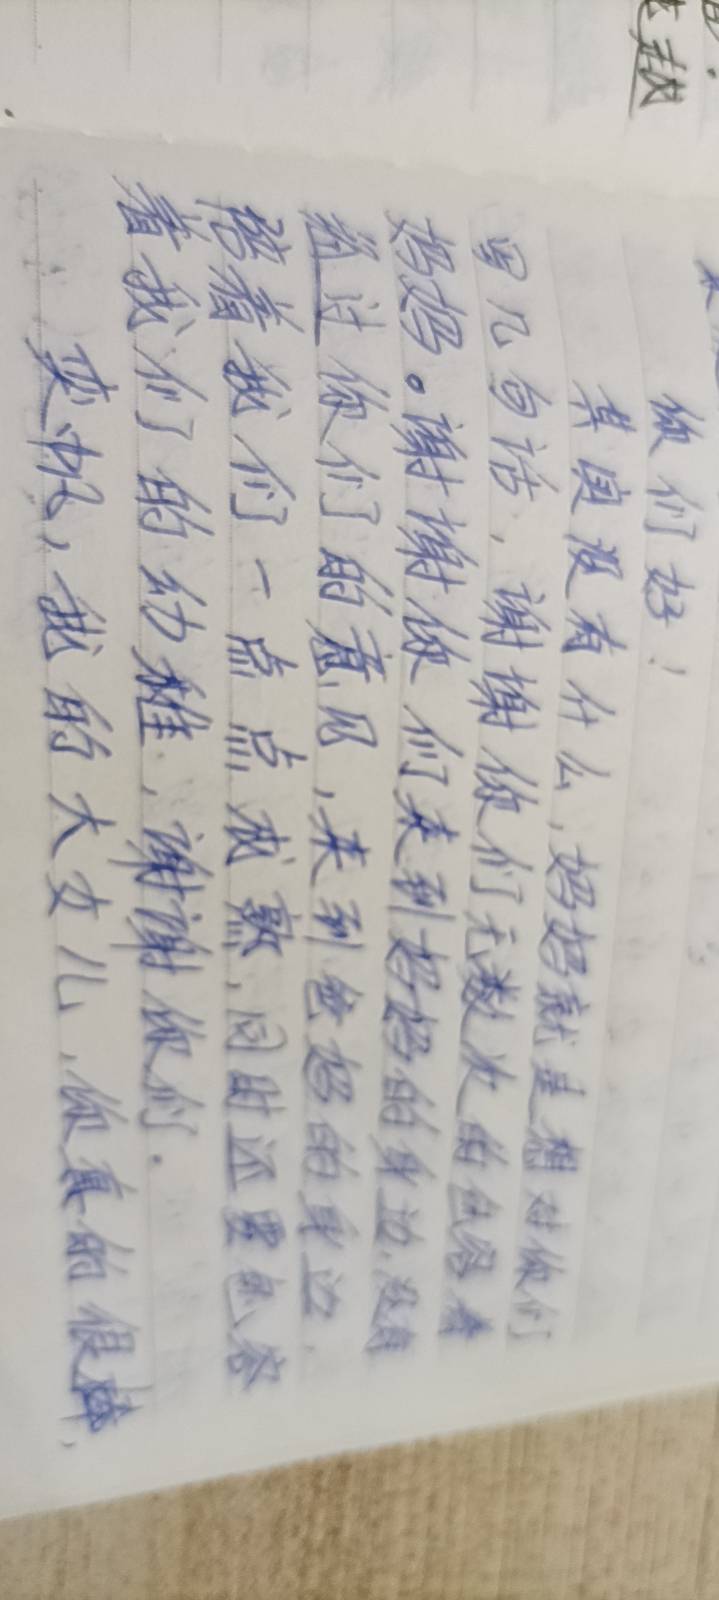 你们好！
其实没有什么，妈妈就是想对你们
写几句话，谢谢你们无数次的包容着
妈妈。谢谢你们来到妈妈的身边，没有
经过你们的意见，来到爸妈的身边，
陪着我们一点点成熟，同时还要包容
着我们的幼稚，谢谢你们.
奕帆，我的大女儿，你真的很棒，